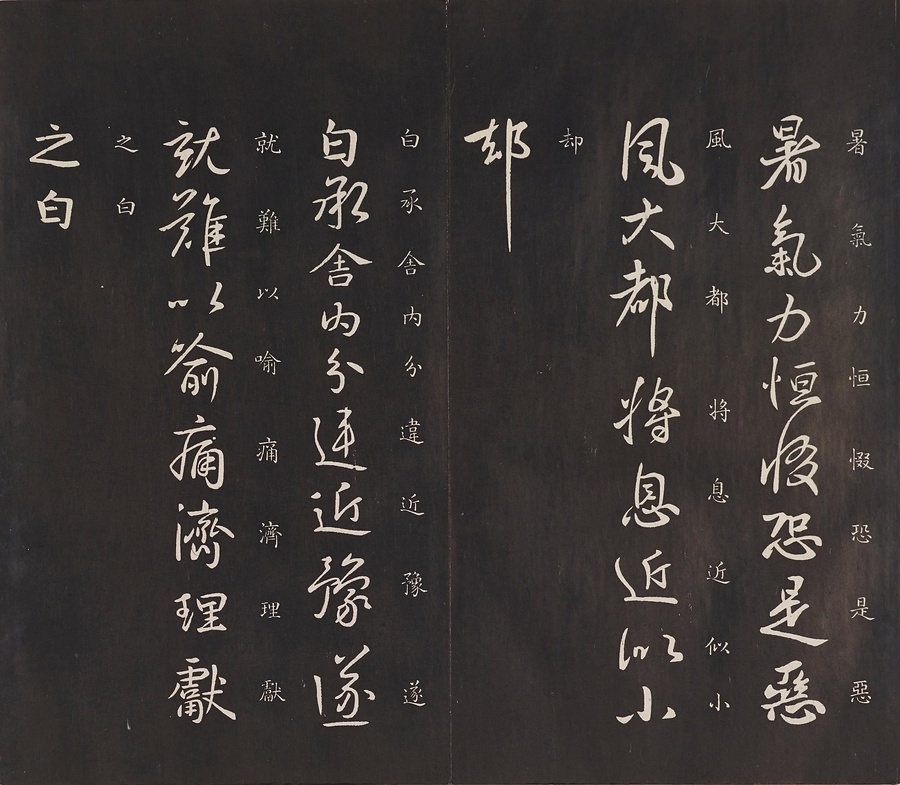 暑氣力恒惙恐是惡
暑氣力恒惙恐是惡
風大都将息近似小
風大都将息近似小
却
却
白承舍内分違近豫遂
白承舍内分違近豫遂
就難以喻痛濟理獻
就難以喻痛濟理獻
之白
之白